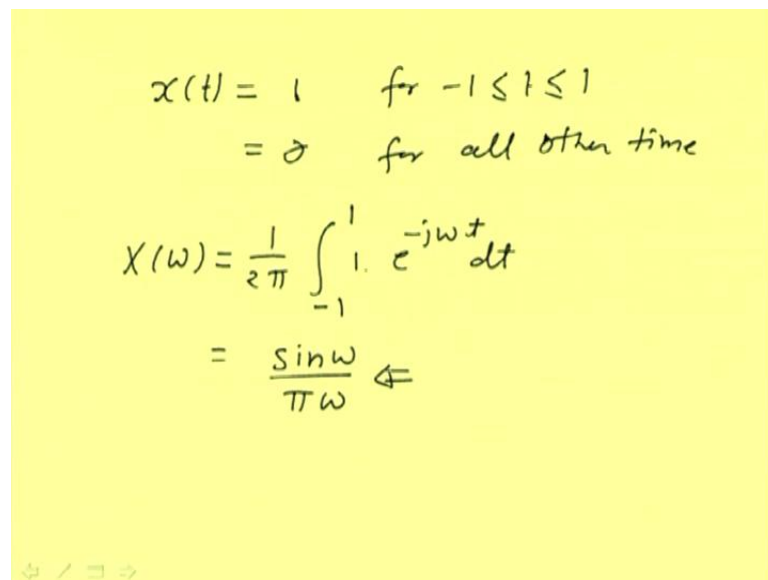 x(t) = 1 for -1 ≤ 1 ≤ 1
= 0 for all other time
X(ω) = 1/2π ∫_{-1}^{1} 1. e^{-jωt} dt
= sinω/πω ⇐